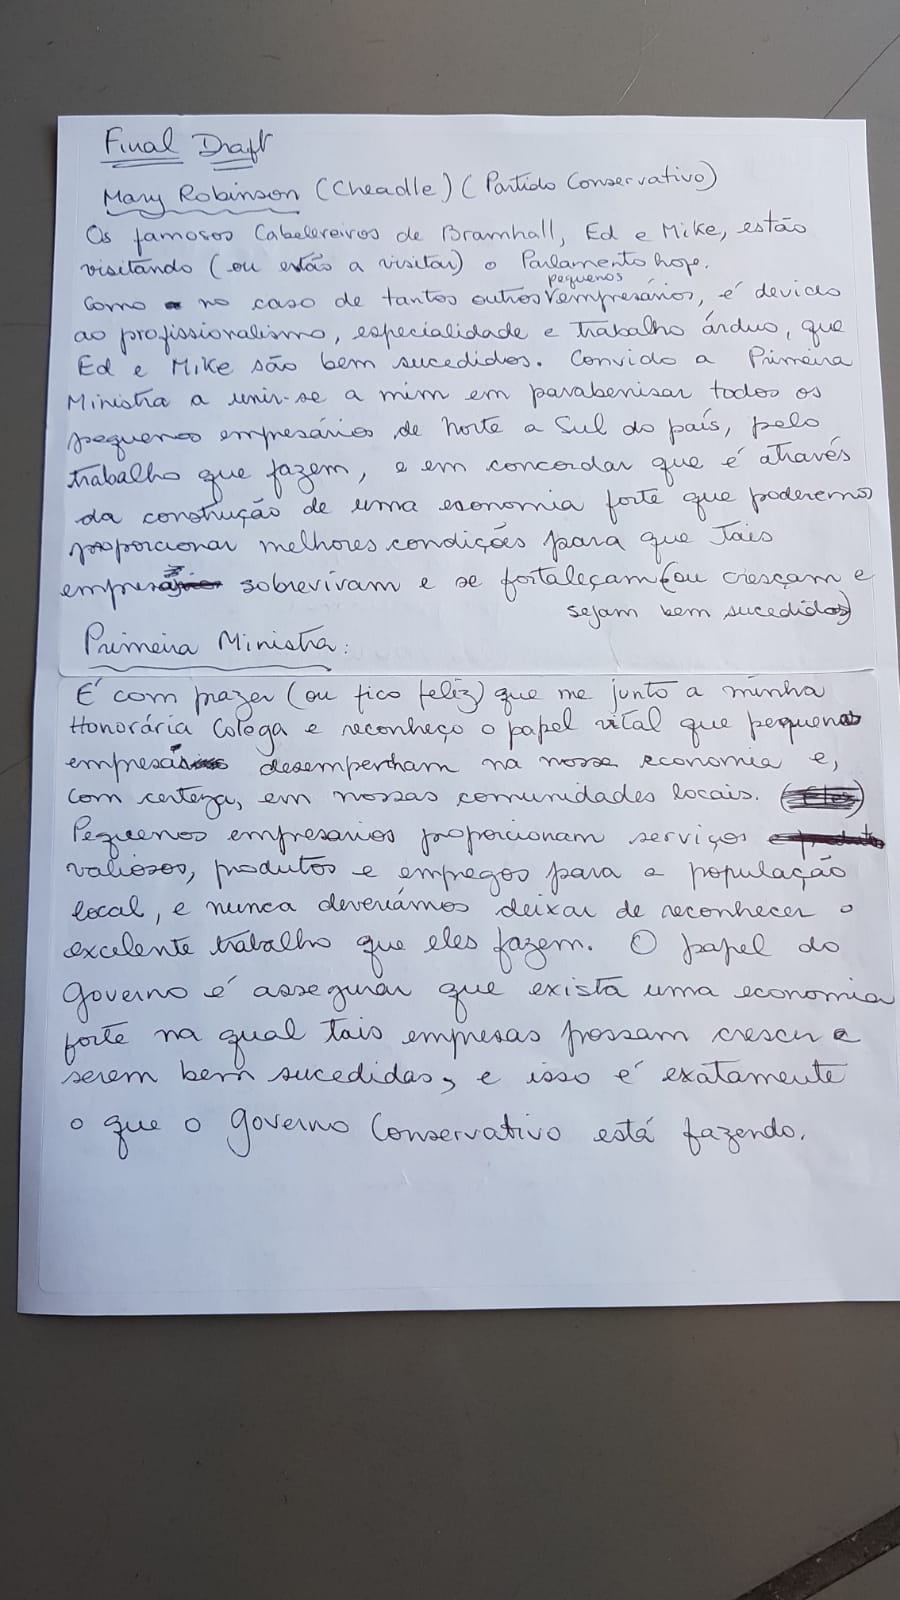 Final Draft
Mary Robinson (Cheadle) (Partido Conservativo)
Os famosos Cabelereiros de Bramhall, Ed e Mike, estão
visitando (ou estão a visitar) o Parlamento hoje.
pequenos
Como no caso de tantos outros empresários, é devido
ao profissionalismo, especialidade e trabalho árduo, que
Ed e Mike são bem sucedidos. Convido a Primeira
Ministra a unir-se a mim em parabenisar todos os
pequenos empresários de Norte a Sul do país, pelo
trabalho que fazem, e em concordar que é através
da construção de uma economia forte que poderemos
proporcionar melhores condições para que tais
empresas sobrevivam e se fortaleçam (ou cresçam e
sejam bem sucedidos)
Primeira Ministra:
É com prazer (ou fico feliz) que me junto a minha
Honorária Colega e reconheço o papel vital que pequenas
empresas desempenham na nossa economia e,
com certeza, em nossas comunidades locais.
Pequenos empresarios proporcionam serviços
valiosos, produtos e empregos para a população
local, e nunca deveriámos deixar de reconhecer o
excelente trabalho que eles fazem. O papel do
governo é assegurar que exista uma economia
forte na qual tais empresas possam crescer e
serem bem sucedidas, e isso é exatamente
o que o governo Conservativo está fazendo.